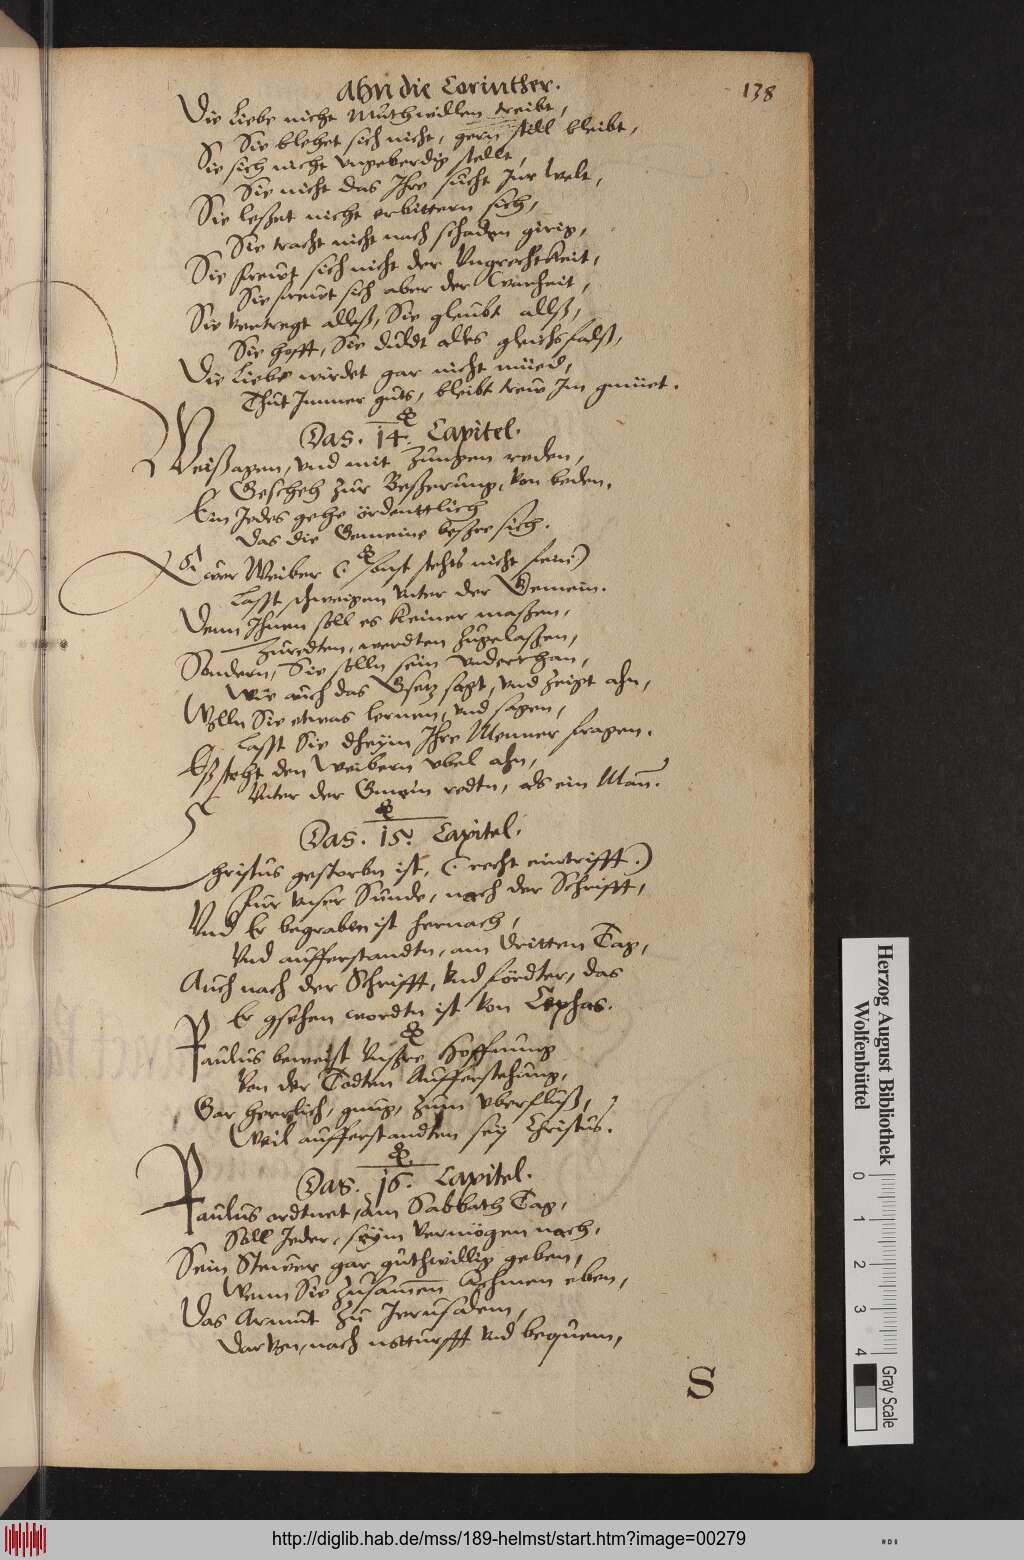 Ahn die Corinther.
138
Die Liebe nicht Muthwillen treibt,
Sie blehet sich nicht, gern still bleibt,
Sie sich nicht vngeberdig stellt,
Sie nicht das Ihre sucht Inr Welt,
Sie leßet nicht erbittern sich,
Sie tracht nicht nach schaden girig,
Sie frewt sich nicht der Vngrechtkeit,
Sie frewt sich aber der Warheit,
Sie vertregt alleß, Sie gleubt allß,
Sie hofft, Sie duldt alles gleichsfalß,
Die Liebe wirdet gar nicht müed,
Thut Immer guts, bleibt trew Im gmüet.
Das. 14. Capitel.
Weißagen, vnd mit Zungen reden,
Gescheh zur Beßerung, von beden,
Ein Jedes gehe ördenttlich
Das die Gemeine beßre sich.
Ewer Weiber (sonst stehts nicht fein)
Lasst schweigen vnter der Gemein.
Denn Ihnen soll es keiner maßen,
Zuredten, werdten zugelaßen,
Sondern, Sie solln sein vnderthan,
Wie auch das Gsetz sagt, vnd zeigt ahn,
Wolln Sie etwas lernen, vnd sagen,
Lasst Sie dheim Ihre Menner fragen.
Eß steht den Weibern vbel ahn,
Vnter der Gmein redtn, als ein Man.
Das. 15. Capitel.
Christus gestorbn ist, (recht eintrifft.)
Fur vnser Sunde, nach der Schrifft,
Vnd Er begraben ist hernach,
Vnd aufferstandtn, am dritten Tag,
Auch nach der Schrifft, vnd fördter, das
Er gsehen wordtn ist von Cephas.
Paulus beweist vnsre Hoffnung
Von der Todten Aufferstehung,
Gar herrlich, gnug, zum vberfluß,
Weil aufferstandten sey Christus.
Das. 16. Capitel.
Paulus ordtnet, am Sabbath Tag,
Soll Jeder, seim vermögen nach,
Sein Stewer gar guthwillig geben,
Wenn Sie Zusamen kehmen eben,
Das Armut zu Jerusalem,
Darvon, nach notturfft vnd bequem,
S
Herzog August Bibliothek
Wolfenbüttel
0 1 2 3 4
Gray Scale
http://diglib.hab.de/mss/189-helmst/start.htm?image=00279